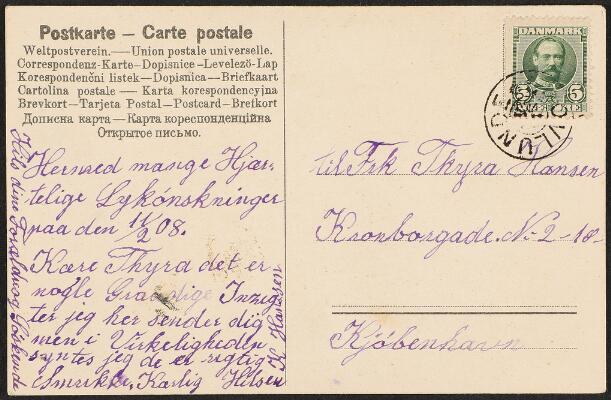 Postkarte – Carte postale
Weltpostverein.—Union postale universelle.
Correspondenz-Karte-Dopisnice-Levelező-Lap
Korespondenční listek-Dopisnica-Briefkaart
Cartolina postale — Karta korespondencyjna
Brevkort-Tarjeta Postal-Postcard-Brefkort
Дописна карта—Карта кореспонденційна
Открытое письмо.
Hermed mange Hjær-
telige Lykónskninger
paa den 11/2 08.
Kære Thyra det er
nogle Graadige
ter jeg her sender dig
men i Virkeligheden
syntes jeg de er rigtig
Smukke. Kærlig Hilsen
K Hansen
Hils dine Forældre og Søskende
DANMARK
5 5
LUND
til Frk Thyra Hansen
Kronborgade. N. 2-18
Kjöbenhavn